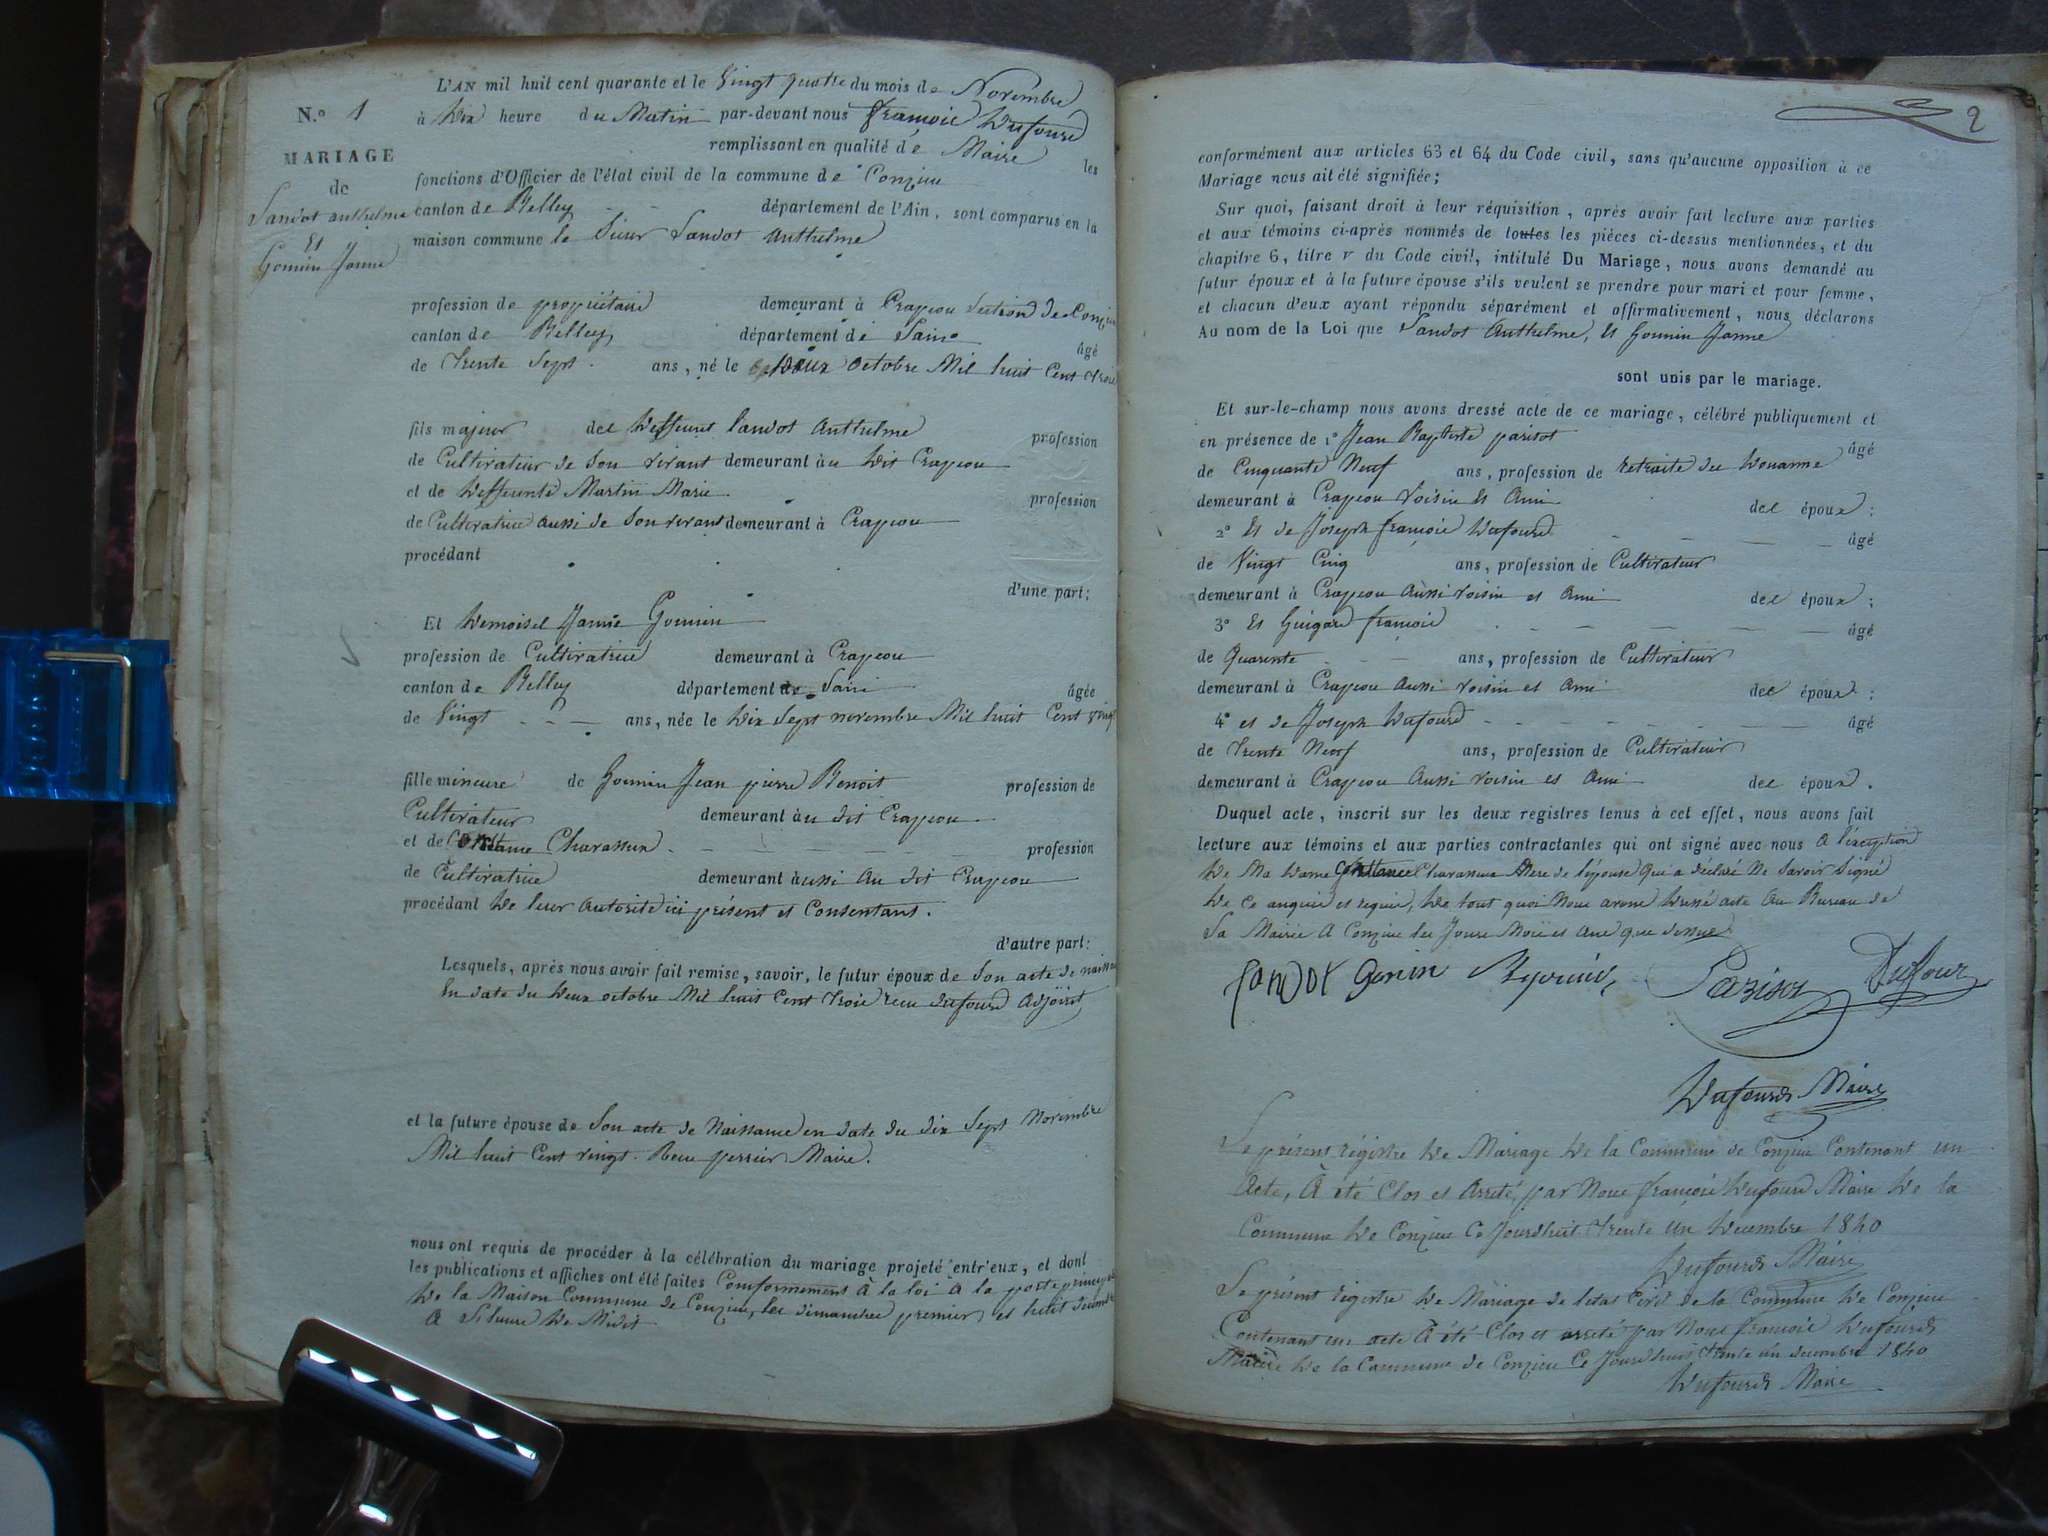 L'AN mil huit cent quarante et le Vingt quatre du mois de Novembre
N.° 1
à Dix heure du Matin par-devant nous françois Dufourd
MARIAGE
remplissant en qualité de Maire les
de
fonctions d'Officier de l'état civil de la commune de Conzieu
Sandot anthelme
canton de Belley département de l'Ain, sont comparus en la
Et
maison commune le Sieur Sandot Anthelme
Gonnin Janne
profession de propriétaire demeurant à Crapeou Section de Conzieu
canton de Belley département de Lain âgé
de Trente Sept ans, né le Deux octobre Mil huit Cent trois
fils majeur de Deffeunt Sandot Anthelme profession
de Cultivateur de Son vivant demeurant au Dit Crapeou
et de Deffeunte Martin Marie profession
de Cultivatrice aussi de Son vivant demeurant à Crapeou
procédant
d'une part;
Et Demoisel Janne Gonnin
profession de Cultivatrice demeurant à Crapeou
canton de Belley département de Lain âgée
de Vingt ans, née le Dix Sept novembre Mil huit Cent vingt
fille mineure de Gonnin Jean pierre Benoit profession de
Cultivateur demeurant au dit Crapeou
et de Charassun profession
de Cultivatrice demeurant aussi Au dit Crapeou
procédant De leur Autorité ici présent et Consentant.
d'autre part:
Lesquels, après nous avoir fait remise, savoir, le futur époux de Son acte de naissance
En date du Deux octobre Mil huit Cent trois reçu dufourd Adjoint
et la future épouse de Son acte de Naissance en date du dix Sept Novembre
Mil huit Cent vingt. Reçu perrier Maire.
nous ont requis de procéder à la célébration du mariage projeté entr'eux, et dont
les publications et affiches ont été faites Conformément à la loi à la porte principale
De la Maison Commune de Conzieu, les dimanches premier et huit
à heure De Midi
2
conformément aux articles 63 et 64 du Code civil, sans qu'aucune opposition à ce
Mariage nous ait été signifiée;
Sur quoi, faisant droit à leur réquisition, après avoir fait lecture aux parties
et aux témoins ci-après nommés de toutes les pièces ci-dessus mentionnées, et du
chapitre 6, titre v du Code civil, intitulé Du Mariage, nous avons demandé au
futur époux et à la future épouse s'ils veulent se prendre pour mari et pour femme,
et chacun d'eux ayant répondu séparément et affirmativement, nous déclarons
Au nom de la Loi que Sandot Anthelme, Et Gonnin Janne
sont unis par le mariage.
Et sur-le-champ nous avons dressé acte de ce mariage, célébré publiquement et
en présence de 1° Jean Baptiste parisot âgé
de Cinquante Neuf ans, profession de retraite des Douanne
demeurant à Crapeou Voisin Et Ami des époux;
2° Et de Joseph françois Dufourd âgé
de Vingt Cinq ans, profession de Cultivateur
demeurant à Crapeou Aussi voisin et Ami des époux;
3° Et Guigard françois âgé
de Quarente ans, profession de Cultivateur
demeurant à Crapeou Aussi voisin et Ami des époux;
4° et de Joseph Dufourd âgé
de Trente Neuf ans, profession de Cultivateur
demeurant à Crapeou Aussi voisin et Ami des époux.
Duquel acte, inscrit sur les deux registres tenus à cet effet, nous avons fait
lecture aux témoins et aux parties contractantes qui ont signé avec nous A l'exception
De Ma Dame Constance Charassun Mere de l'épouse Qui a déclaré Ne Savoir Signé
De Ce anquis et requis, De tout quoi Nous avons Dressé acte Au Bureau de
La Mairie A Conzieu les Jours Mois et ans que dessus
Sandot Gonin Parisot Dufour
Dufourd Maire
Le présent régistre De Mariage De la Commune de Conzieu Contenant un
Acte, A été Clos et Arreté par Nous françois Dufourd Maire De la
Commune De Conzieu Ce Jourdhuit Trente Un Decembre 1840
Dufourd Maire
Le présent registre De Mariage de letat Civil de la Commune De Conzieu
Contenant un acte A été Clos et arreté par Nous francois Dufourd
Maire De la Commune de Conzieu Ce Jourdhuit trente un decembre 1840
Dufourd Maire